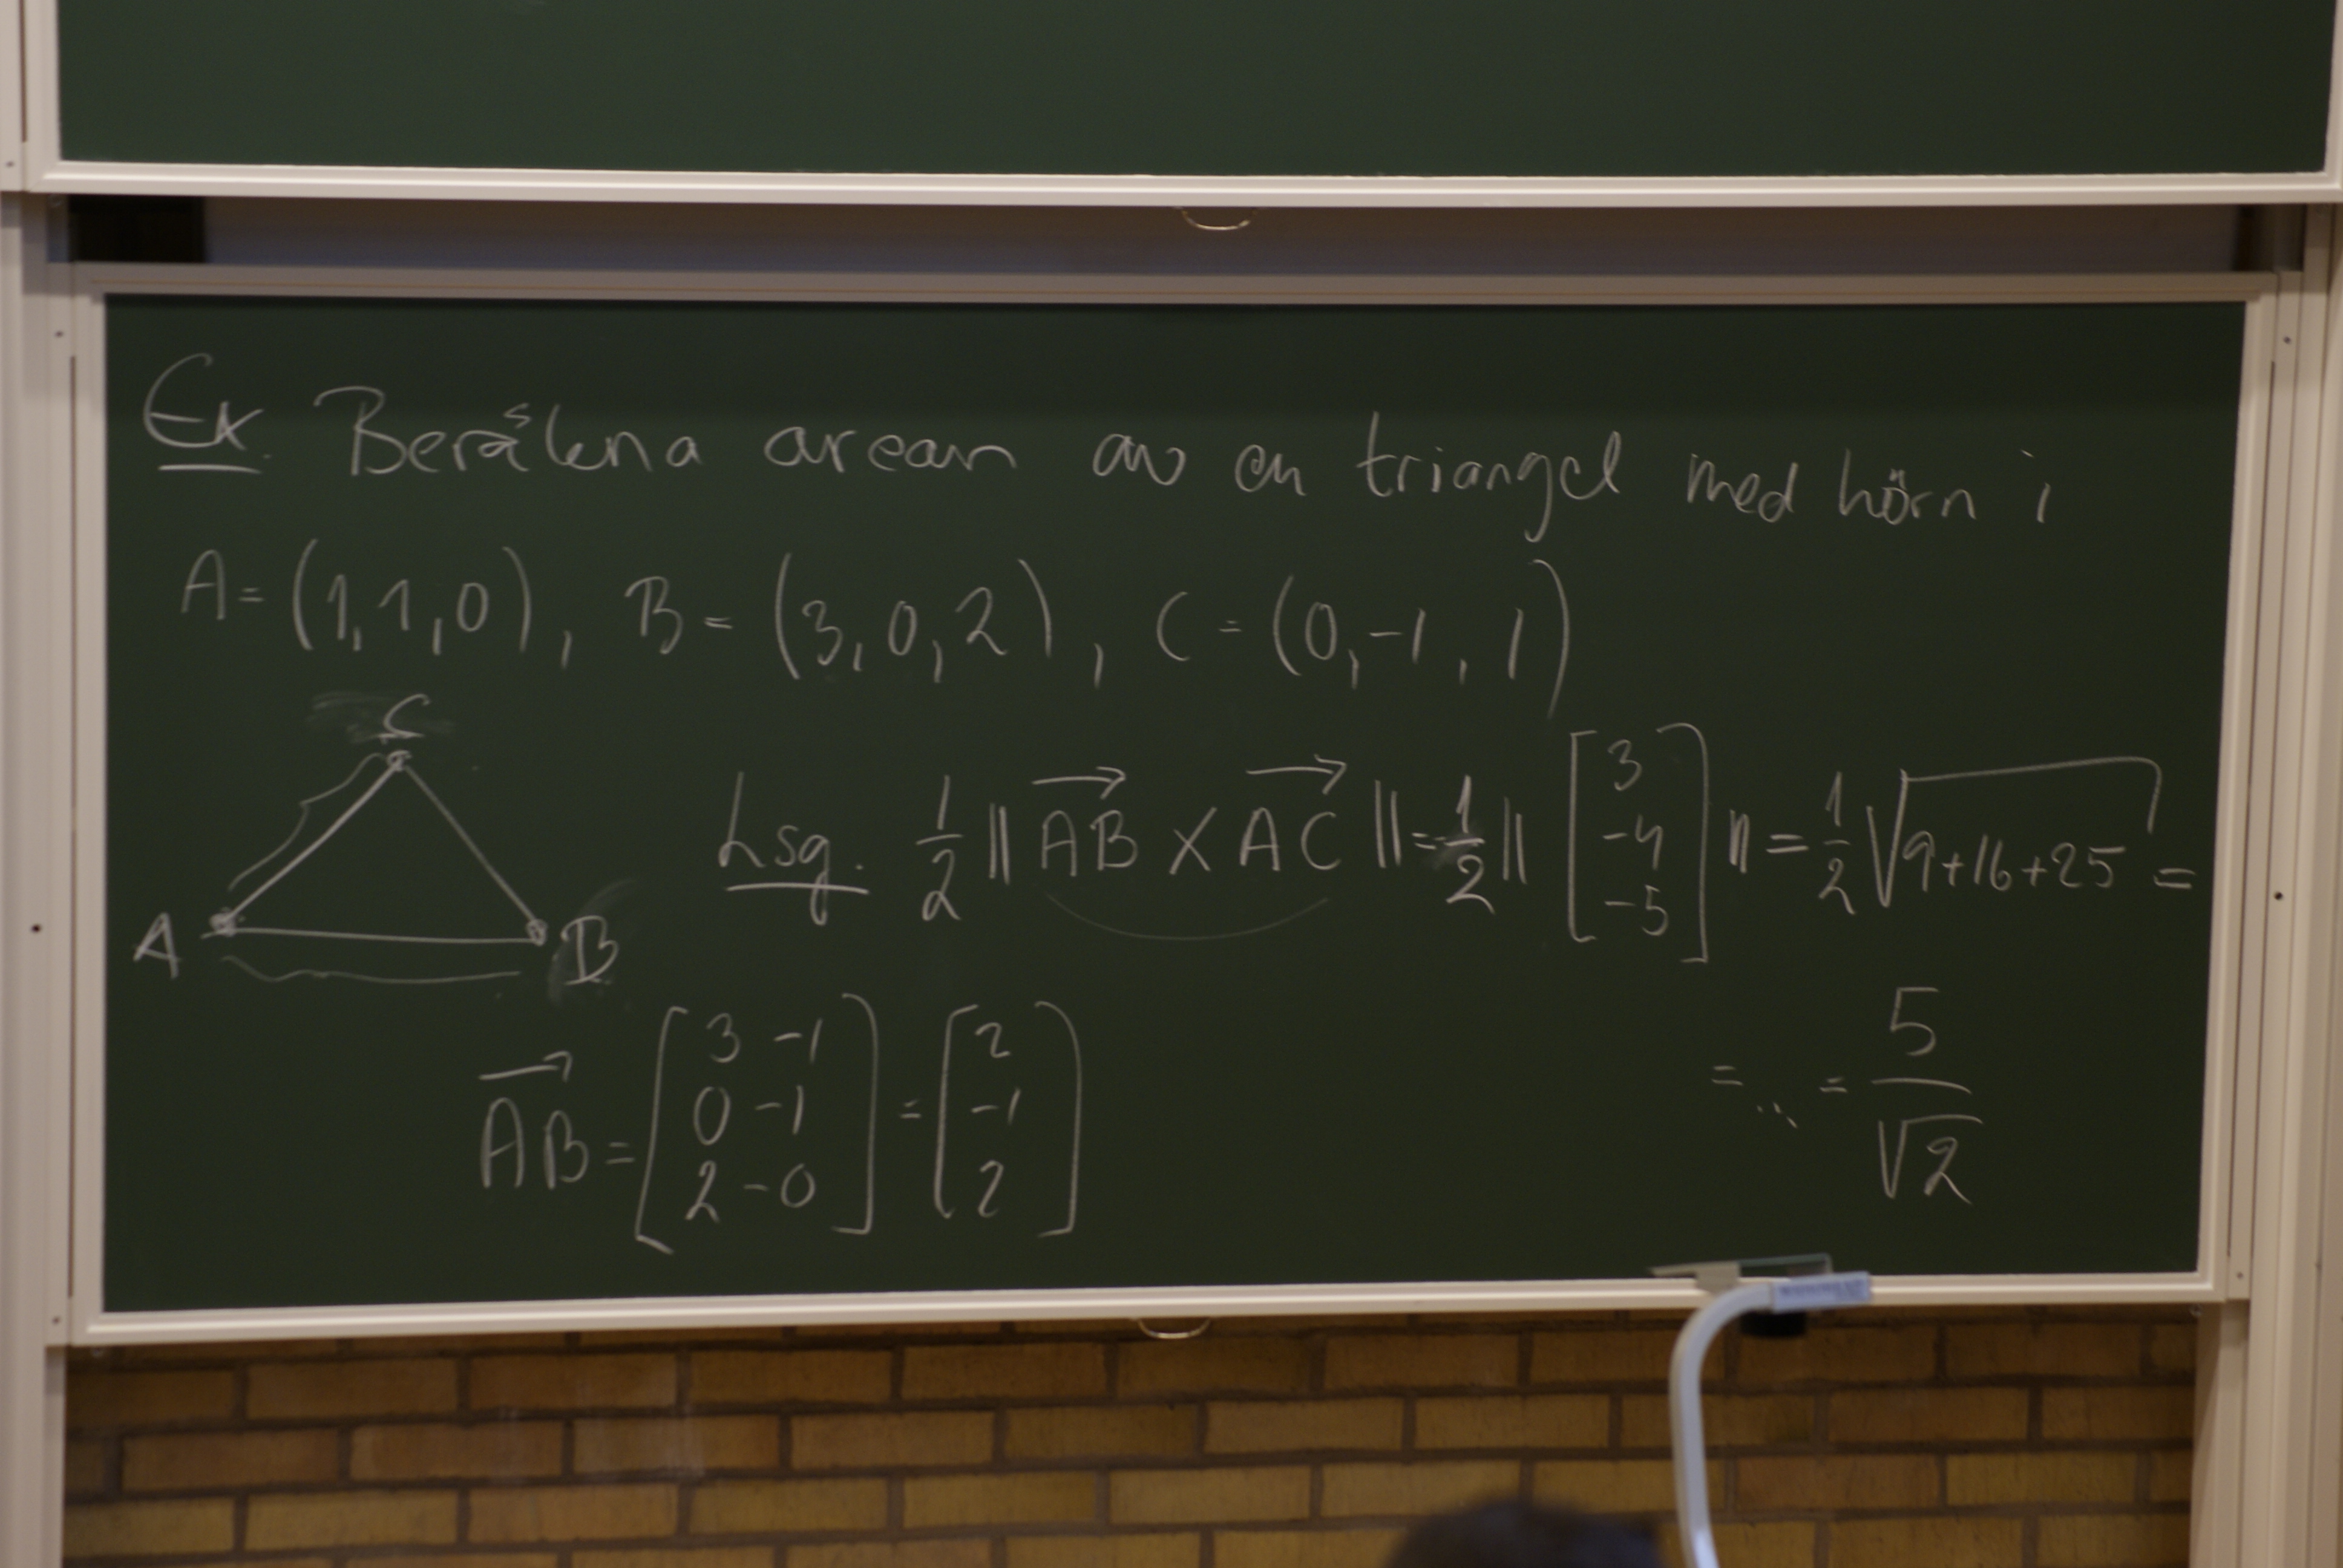 Ex. Beräkna arean av en triangel med hörn i
A = (1,1,0), B = (3,0,2), C = (0,-1,1)
C
A
B
Lsg. 1/2 ‖AB→ × AC→‖ = 1/2 ‖[3 -4 -5]‖ = 1/2 √(9+16+25) =
= ... = 5/√2
AB→ = [3-1 0-1 2-0] = [2 -1 2]